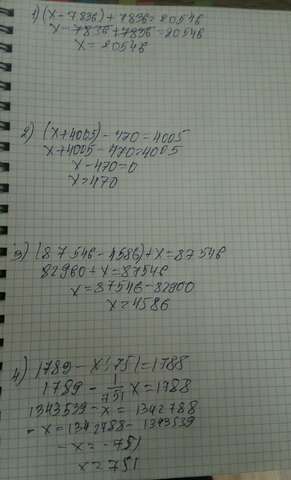 1) (x - 7836) + 7836 = 20546
x - 7836 + 7836 = 20546
x = 20546
2) (x + 4005) - 470 = 4005
x + 4005 - 470 = 4005
x - 470 = 0
x = 470
3) (87546 - 4586) + x = 87546
82960 + x = 87546
x = 87546 - 82960
x = 4586
4) 1789 - x : 751 = 1788
1789 - 1/751 x = 1788
1343539 - x = 1342788
- x = 1342788 - 1343539
- x = - 751
x = 751